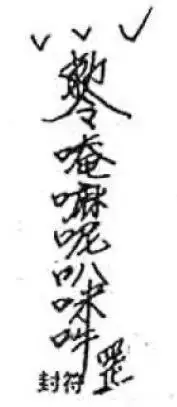 勅令唵嘛呢叭咪吽罡
封符